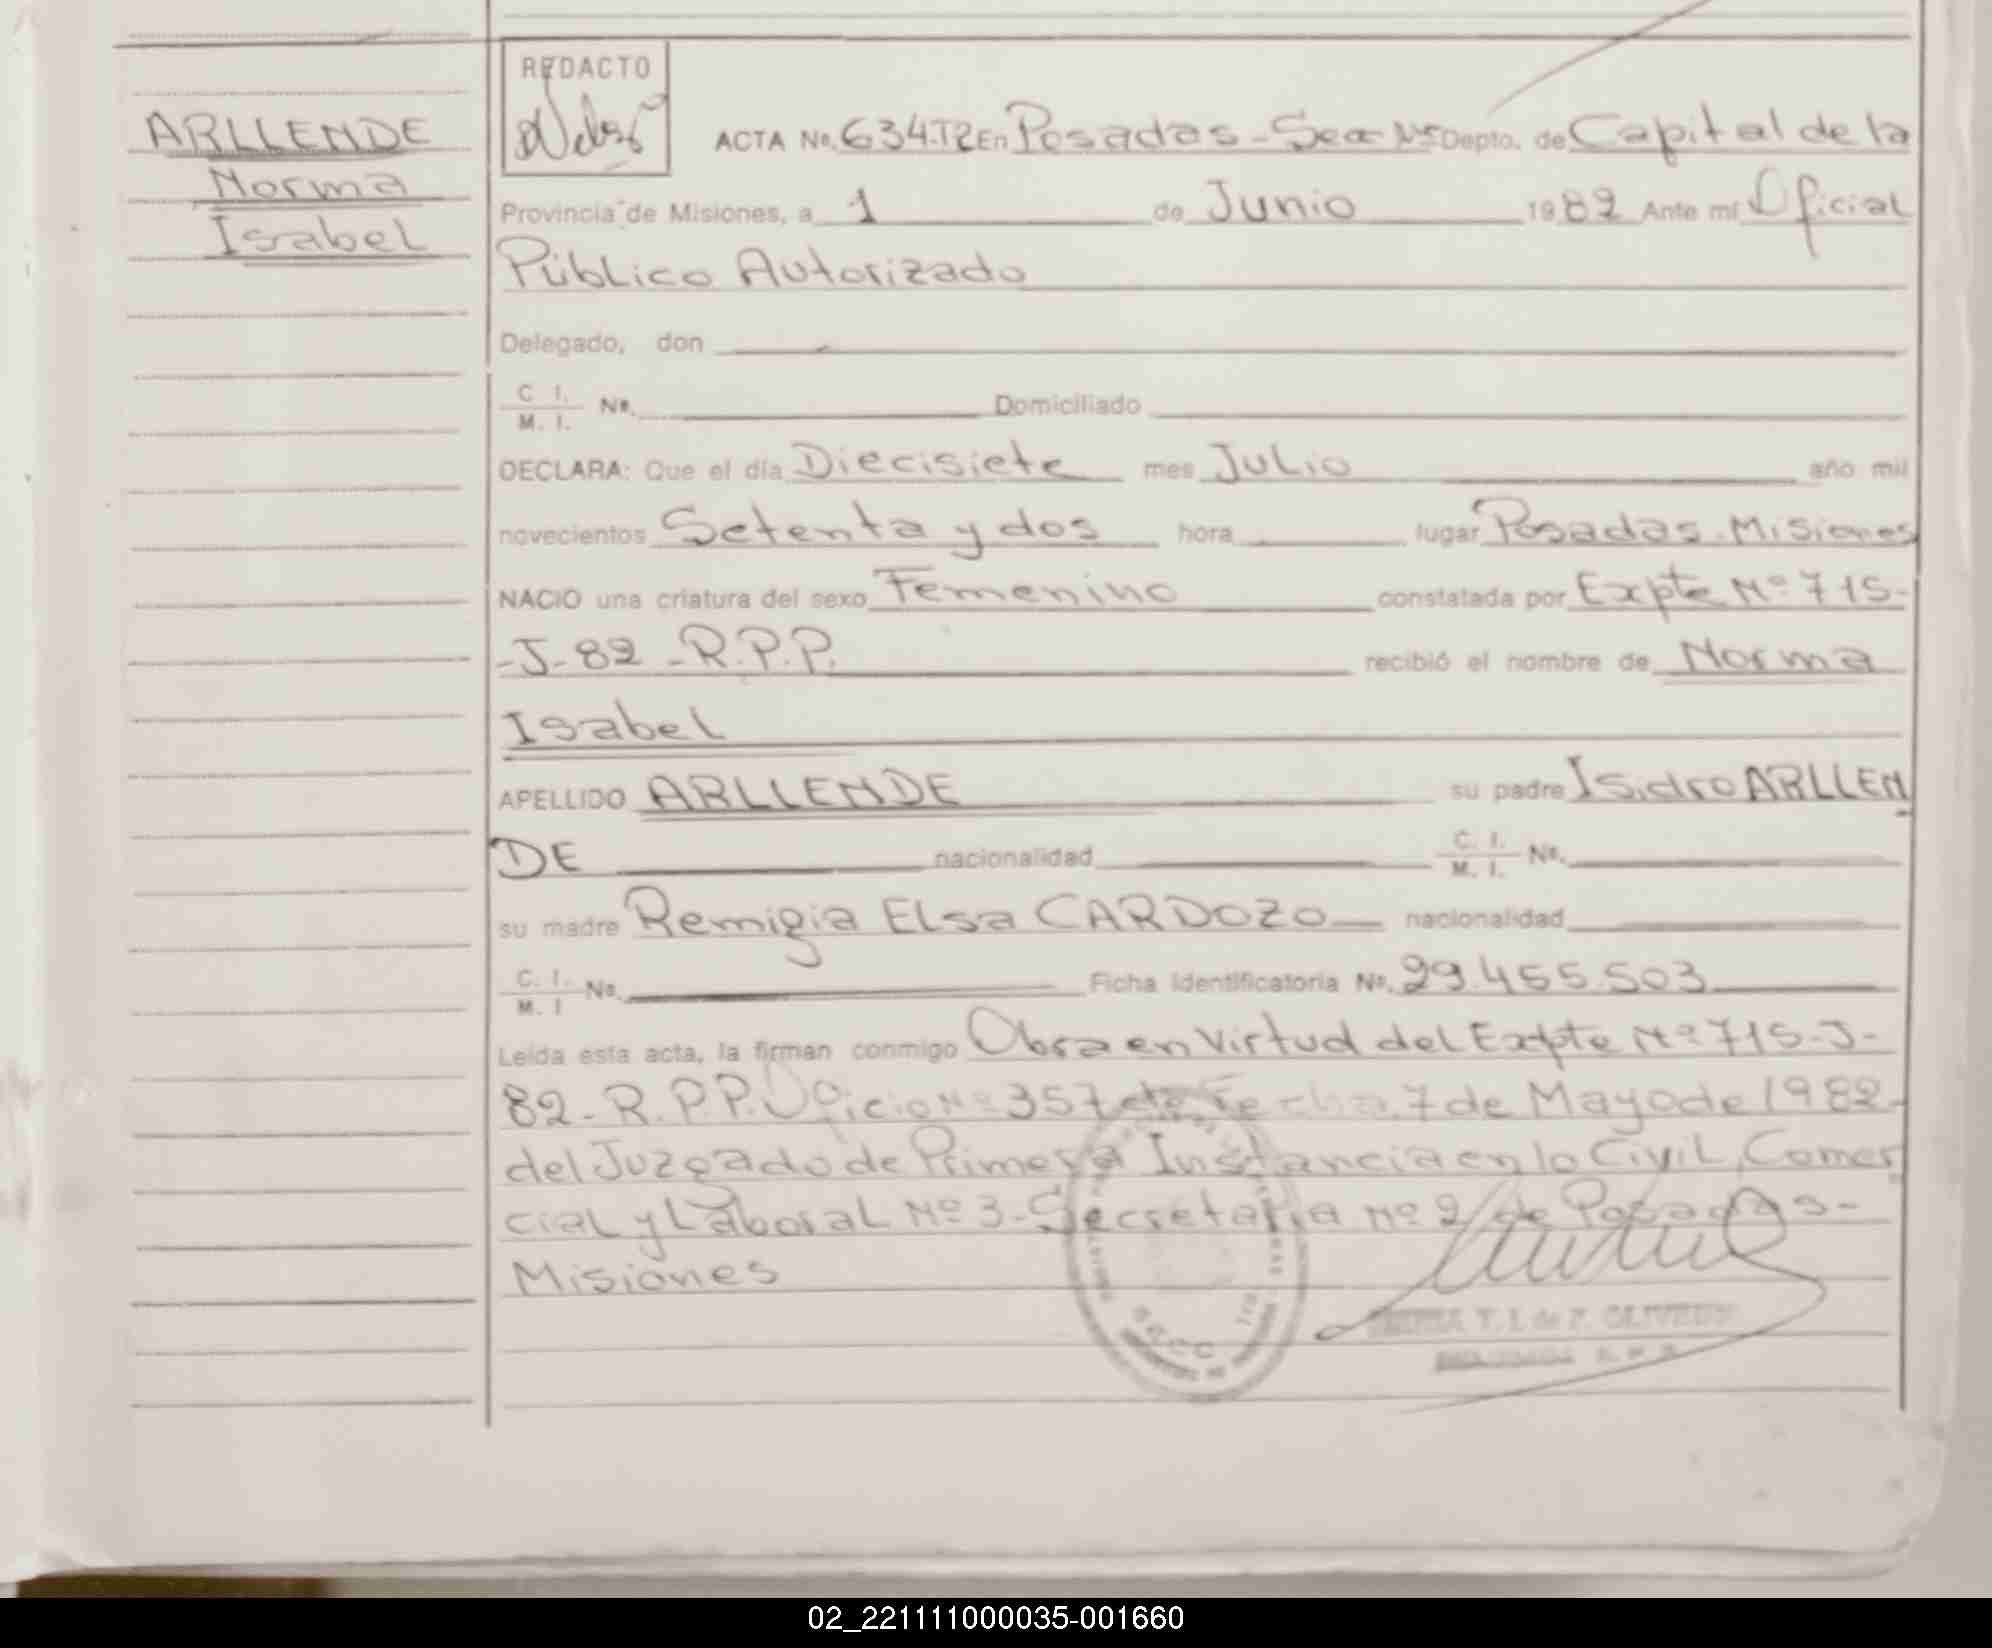 ARLLENDE
Norma
Isabel
REDACTO
ACTA No. 634.T2 En Posadas - Sec Depto. de Capital de la
Provincia de Misiones, a 1 de Junio 1982 Ante mí Oficial
Público Autorizado
Delegado, don
C. I. M. I. No. Domiciliado
DECLARA: Que el día Diecisiete mes Julio año mil
novecientos Setenta y dos hora lugar Posadas. Misiones
NACIO una criatura del sexo Femenino constatada por Expte Nº 715-
-J-82 - R.P.P. recibió el nombre de Norma
Isabel
APELLIDO ARLLENDE su padre Isidro ARLLEN
DE nacionalidad C. I. M. I. No.
su madre Remigia Elsa CARDOZO nacionalidad
C. I. M. I No. Ficha identificatoria No. 29.455.503
Leída esta acta, la firman conmigo Obra en virtud del Expte Nº 715-J-
82-R.P.P. Oficio Nº 357 de Fecha 7 de Mayo de 1982-
del Juzgado de Primera Instancia en lo Civil, Comer
cial y Laboral Nº 3-Secretaria Nº 2 de Posadas-
Misiones
02_221111000035-001660